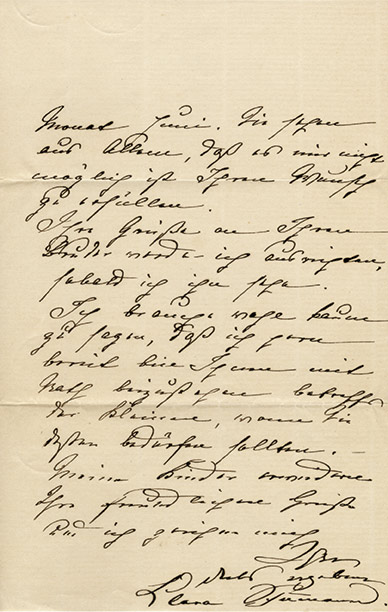 Monat Juni. Sie sehen
aus Allem, daß es mir nicht
möglich ist Ihren Wunsch
zu erfüllen.
Ihre Grüße an Ihren
Bruder werde ich ausrichten,
sobald ich ihn sehe.
Ich brauche wohl kaum
zu sagen, daß ich gern
bereit bin Ihnen mit
Rath beizustehen betreff
der Kleinen, wenn Sie
dessen bedürfen sollten. –
Meine Kinder erwiedern
Ihre freundlichen Grüße
und ich zeichne mich
Ihre
ergebene
Clara Schumann